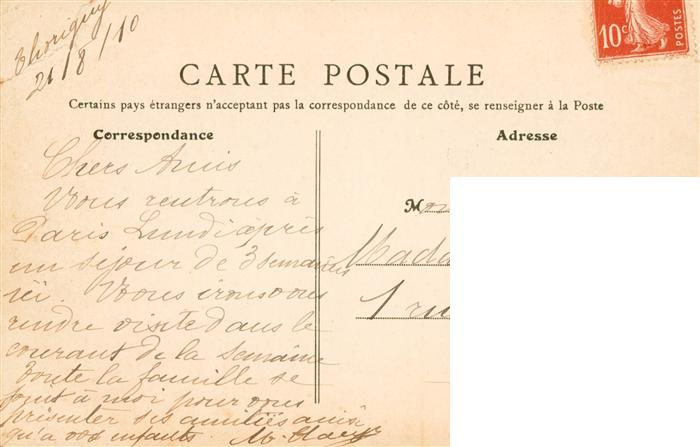 Thorigny
21/8/10
10c
POSTES
CARTE POSTALE
Certains pays étrangers n'acceptent pas la correspondance de ce côté, se renseigner à la Poste
Correspondance
Chers Amis
Nous rentrons à
Paris Lundi après
un séjour de 3 semaines
ici. Nous irons vous
rendre visite dans le
courant de la semaine
Toute la famille se
joint à moi pour vous
présenter ses amitiés ainsi
qu'à vos enfants. M.
Adresse
M
Mada
1 ru